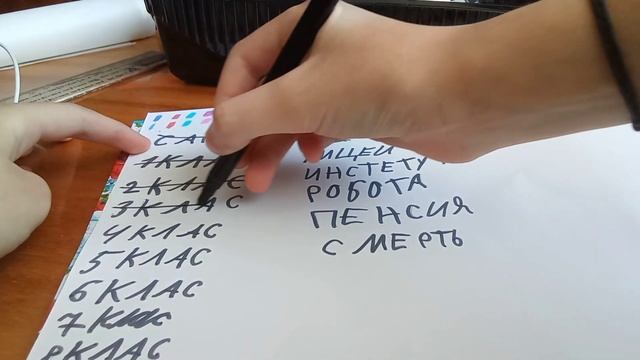 1 КЛА
2 КЛАС
3 КЛАС
4 КЛАС
5 КЛАС
6 КЛАС
7 КЛАС
8 КЛАС
ЛИЦЕЙ
ИНСТЕТУ
РОБОТА
ПЕНСИЯ
СМЕРТЬ